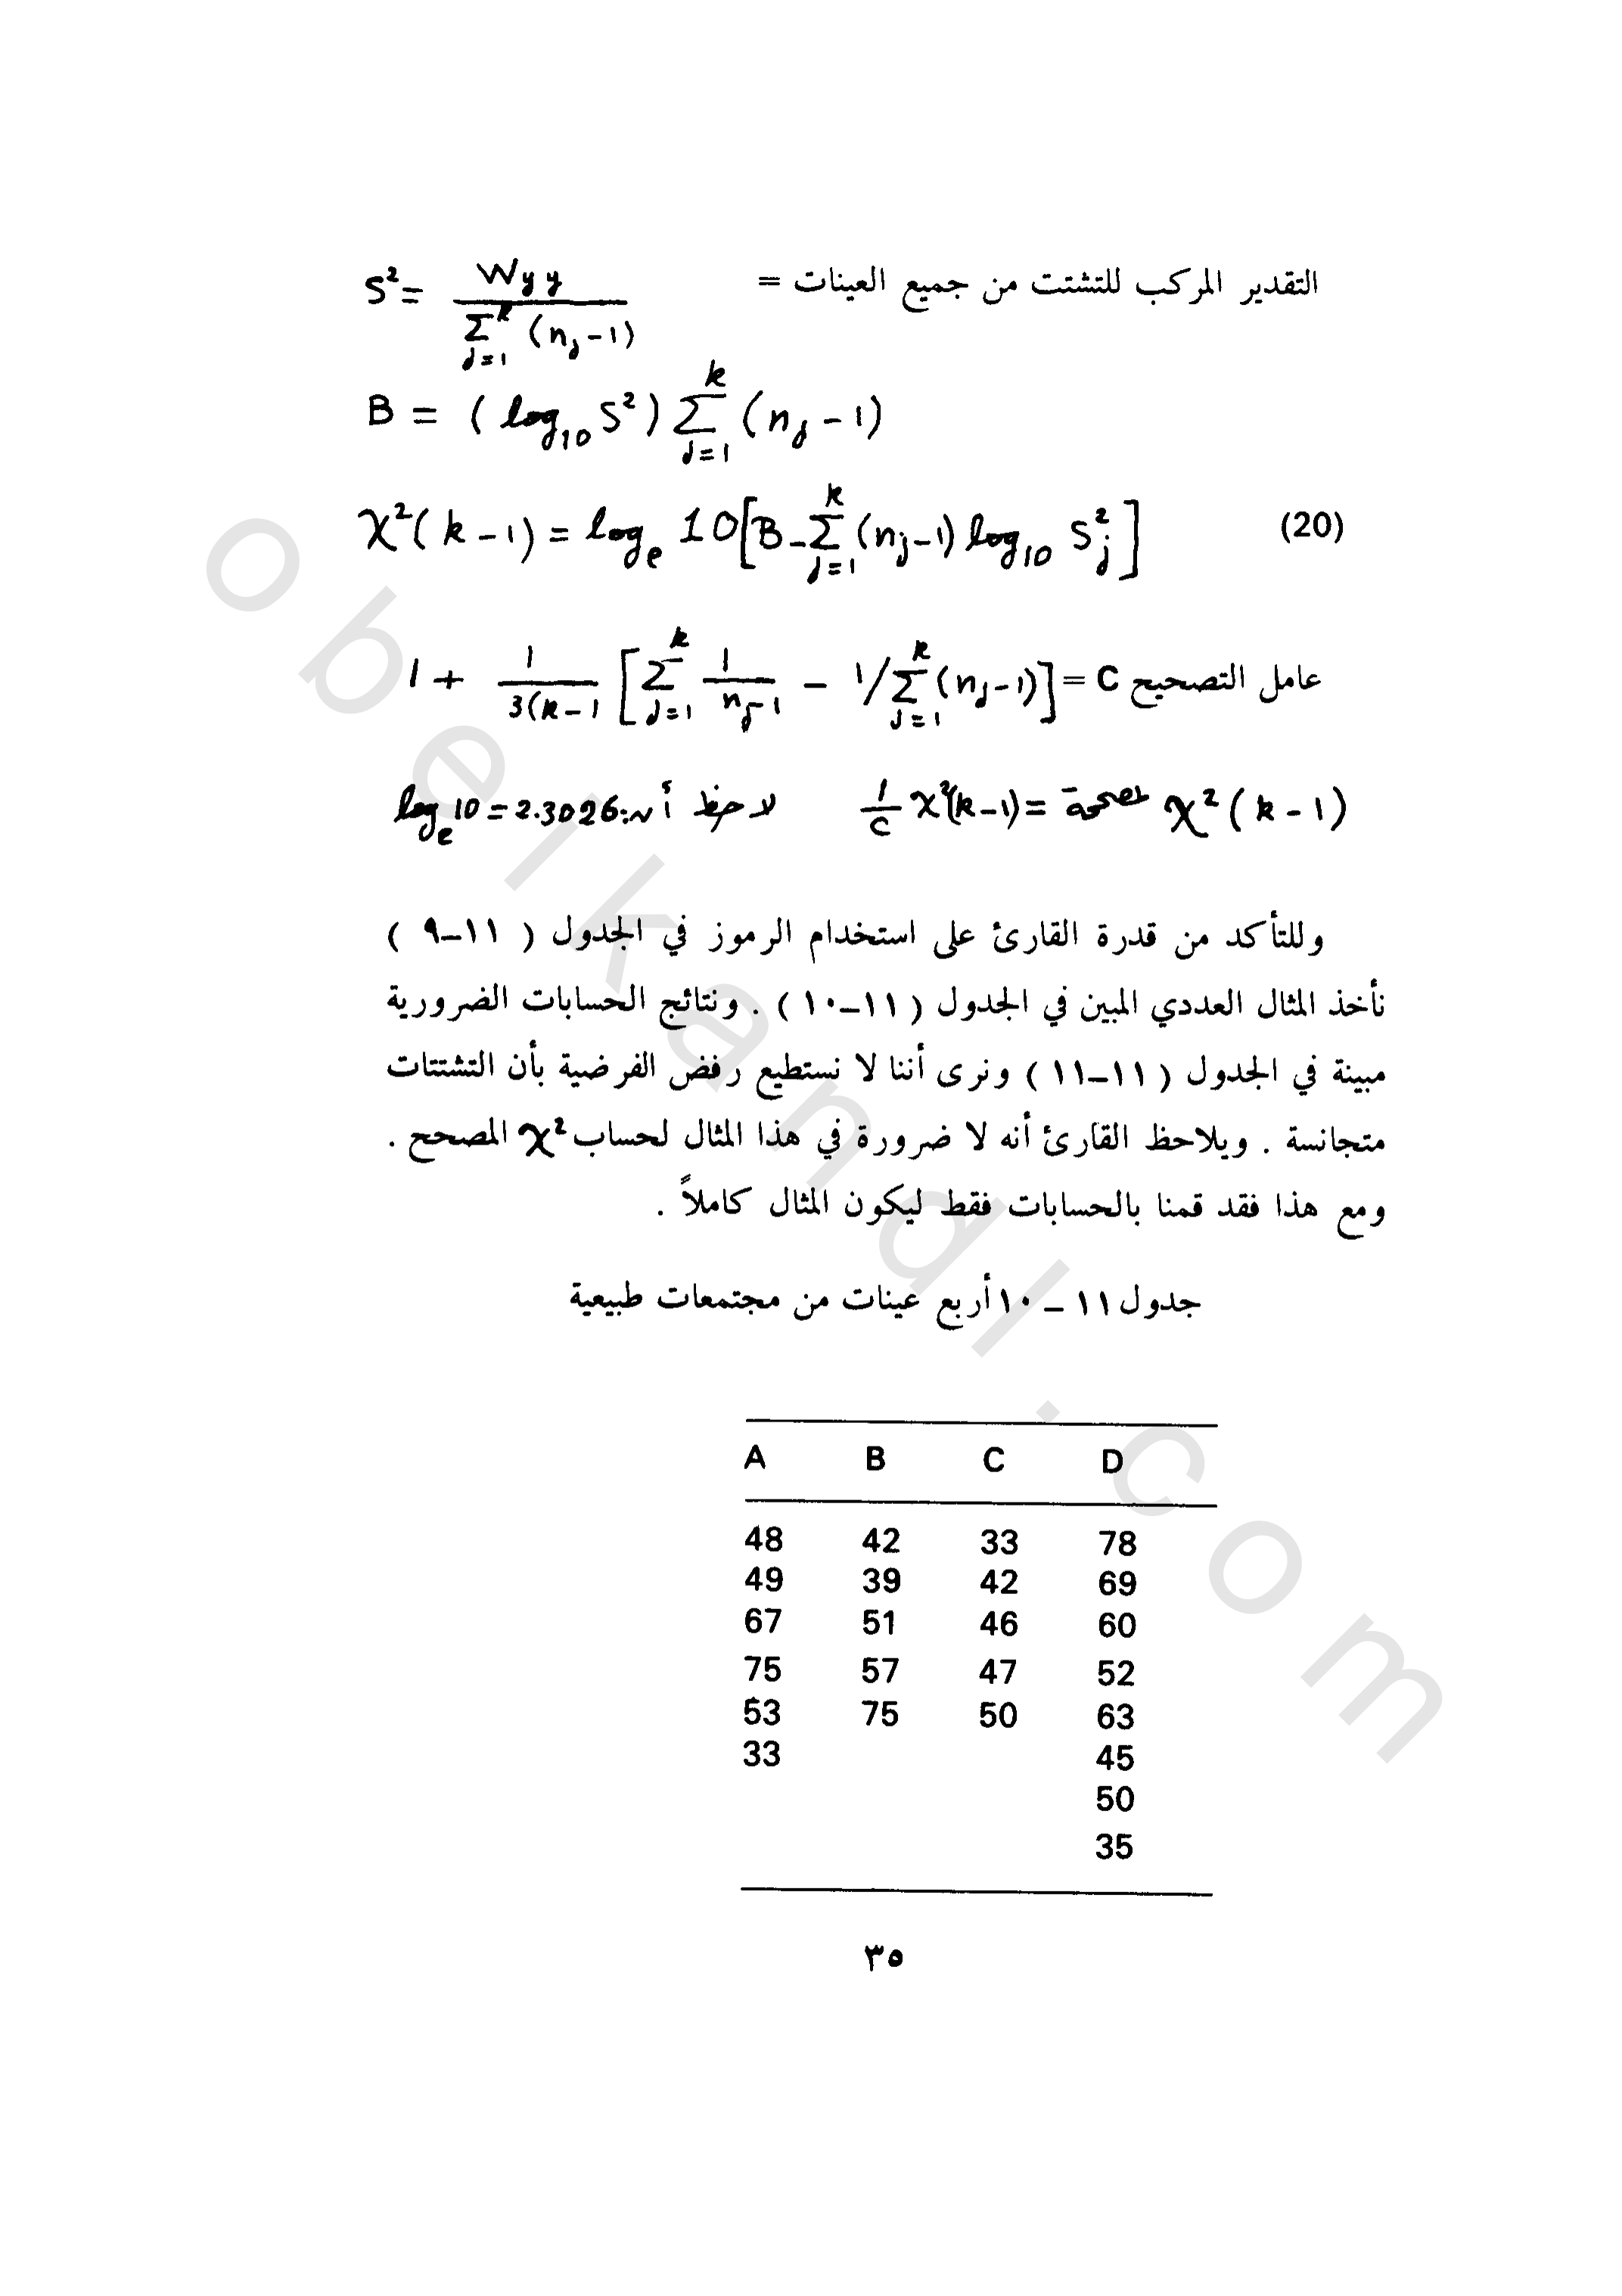 التقدير المركب للتشتت من جميع العينات = S² = Wyy / Σ_{j=1}^{k} (n_j − 1)
B = (log₁₀ S²) Σ_{j=1}^{k} (n_j − 1)
χ²(k − 1) = log_e 10 [B − Σ_{j=1}^{k} (n_j − 1) log₁₀ S_j²] (20)
عامل التصحيح C = 1 + 1/3(k − 1 [Σ_{j=1}^{k} 1/n_j−1 − 1/Σ_{j=1}^{k} (n_j − 1)]
χ²(k − 1) = 1/C χ²(k − 1) لاحظ أن: log_e 10 = 2.3026
وللتأكد من قدرة القارئ على استخدام الرموز في الجدول ( ١١–٩ )
نأخذ المثال العددي المبين في الجدول ( ١١–١٠ ) . ونتائج الحسابات الضرورية
مبينة في الجدول ( ١١–١١ ) ونرى أننا لا نستطيع رفض الفرضية بأن التشتتات
متجانسة . ويلاحظ القارئ أنه لا ضرورة في هذا المثال لحساب χ² المصحح .
ومع هذا فقد قمنا بالحسابات فقط ليكون المثال كاملاً .
جدول ١١ – ١٠ أربع عينات من مجتمعات طبيعية
A B C D
48 42 33 78
49 39 42 69
67 51 46 60
75 57 47 52
53 75 50 63
33 45
50
35
٣٥
obeikandl.com